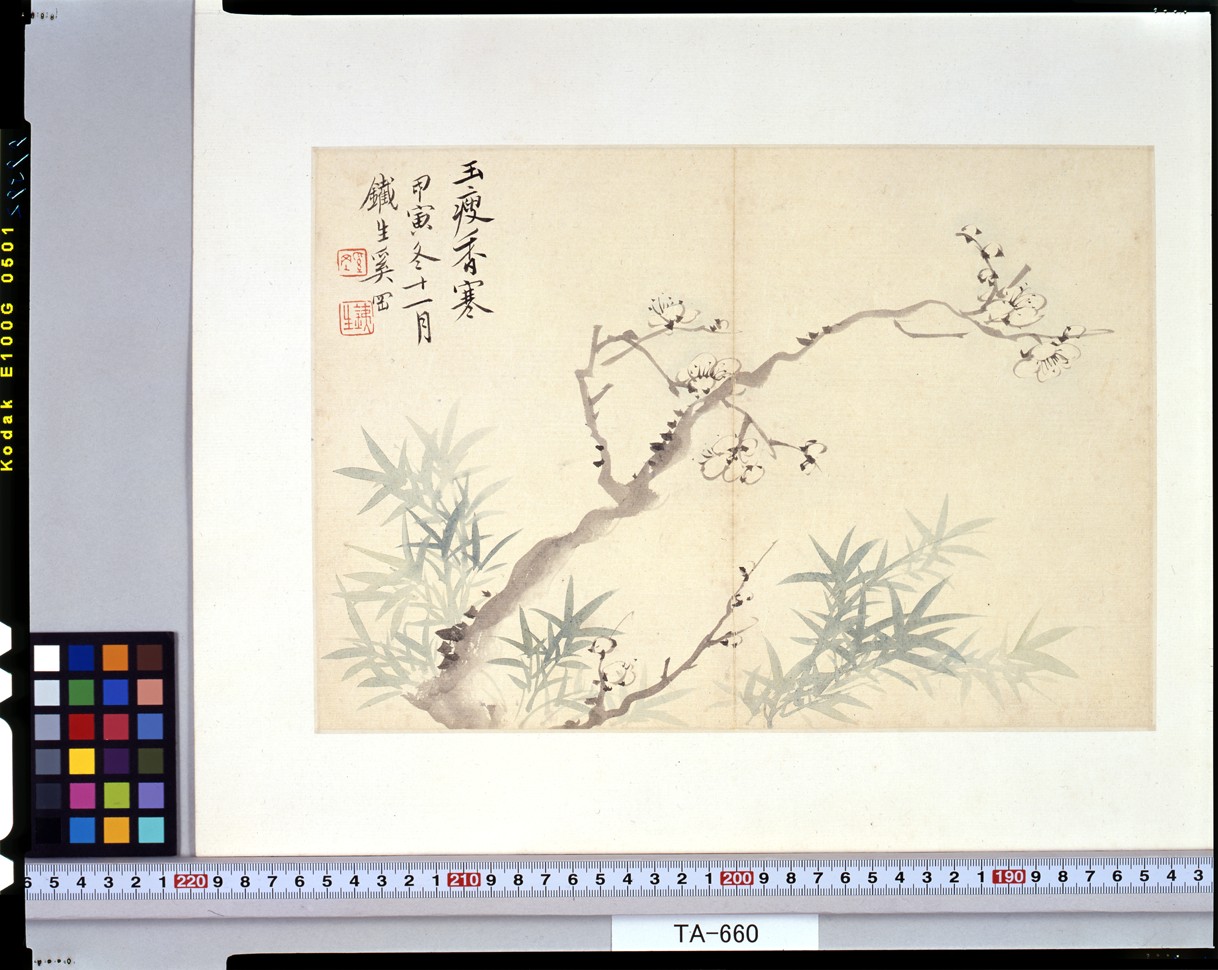 玉瘦香寒
甲寅冬十一月
鐵生奚冈
鐵生
Kodak E100G 0501
6 5 4 3 2 1 220 9 8 7 6 5 4 3 2 1 210 9 8 7 6 5 4 3 2 1 200 9 8 7 6 5 4 3 2 1 190 9 8 7 6 5 4 3
TA-660